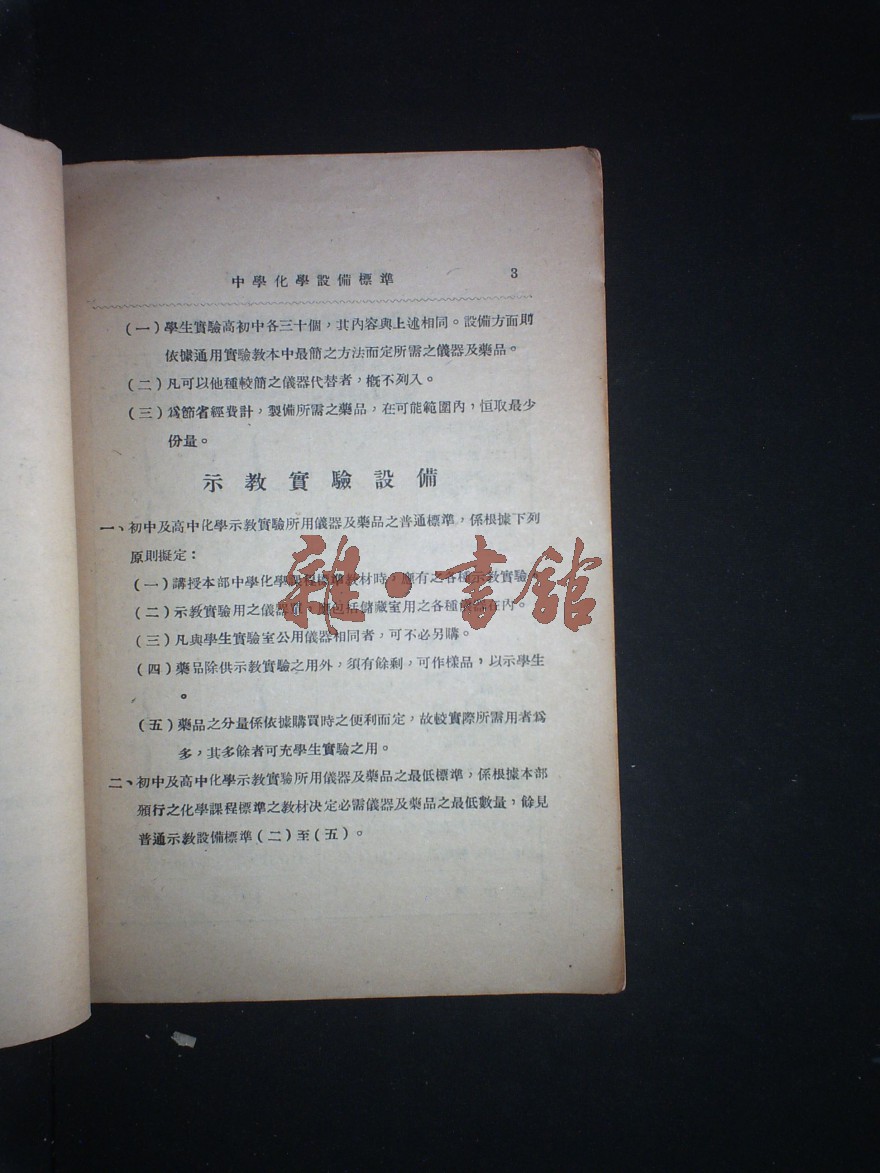 中學化學設備標準 3
(一)學生實驗高初中各三十個,其內容與上述相同。設備方面則
依據通用實驗教本中最簡之方法而定所需之儀器及藥品。
(二)凡可以他種較簡之儀器代替者,槪不列入。
(三)爲節省經費計,製備所需之藥品,在可能範圍內,恒取最少
份量。
示教實驗設備
一、初中及高中化學示教實驗所用儀器及藥品之普通標準,係根據下列
原則擬定:
(一)講授本部中學化學課程標準教材時,應有之各種示教實驗。
(二)示教實驗用之儀器 包括儲藏室用之各種儀器在內。
(三)凡與學生實驗室公用儀器相同者,可不必另購。
(四)藥品除供示教實驗之用外,須有餘剩,可作樣品,以示學生
。
(五)藥品之分量係依據購買時之便利而定,故較實際所需用者爲
多,其多餘者可充學生實驗之用。
二、初中及高中化學示教實驗所用儀器及藥品之最低標準,係根據本部
頒行之化學課程標準之教材决定必需儀器及藥品之最低數量,餘見
普通示教設備標準(二)至(五)。
雜·書館